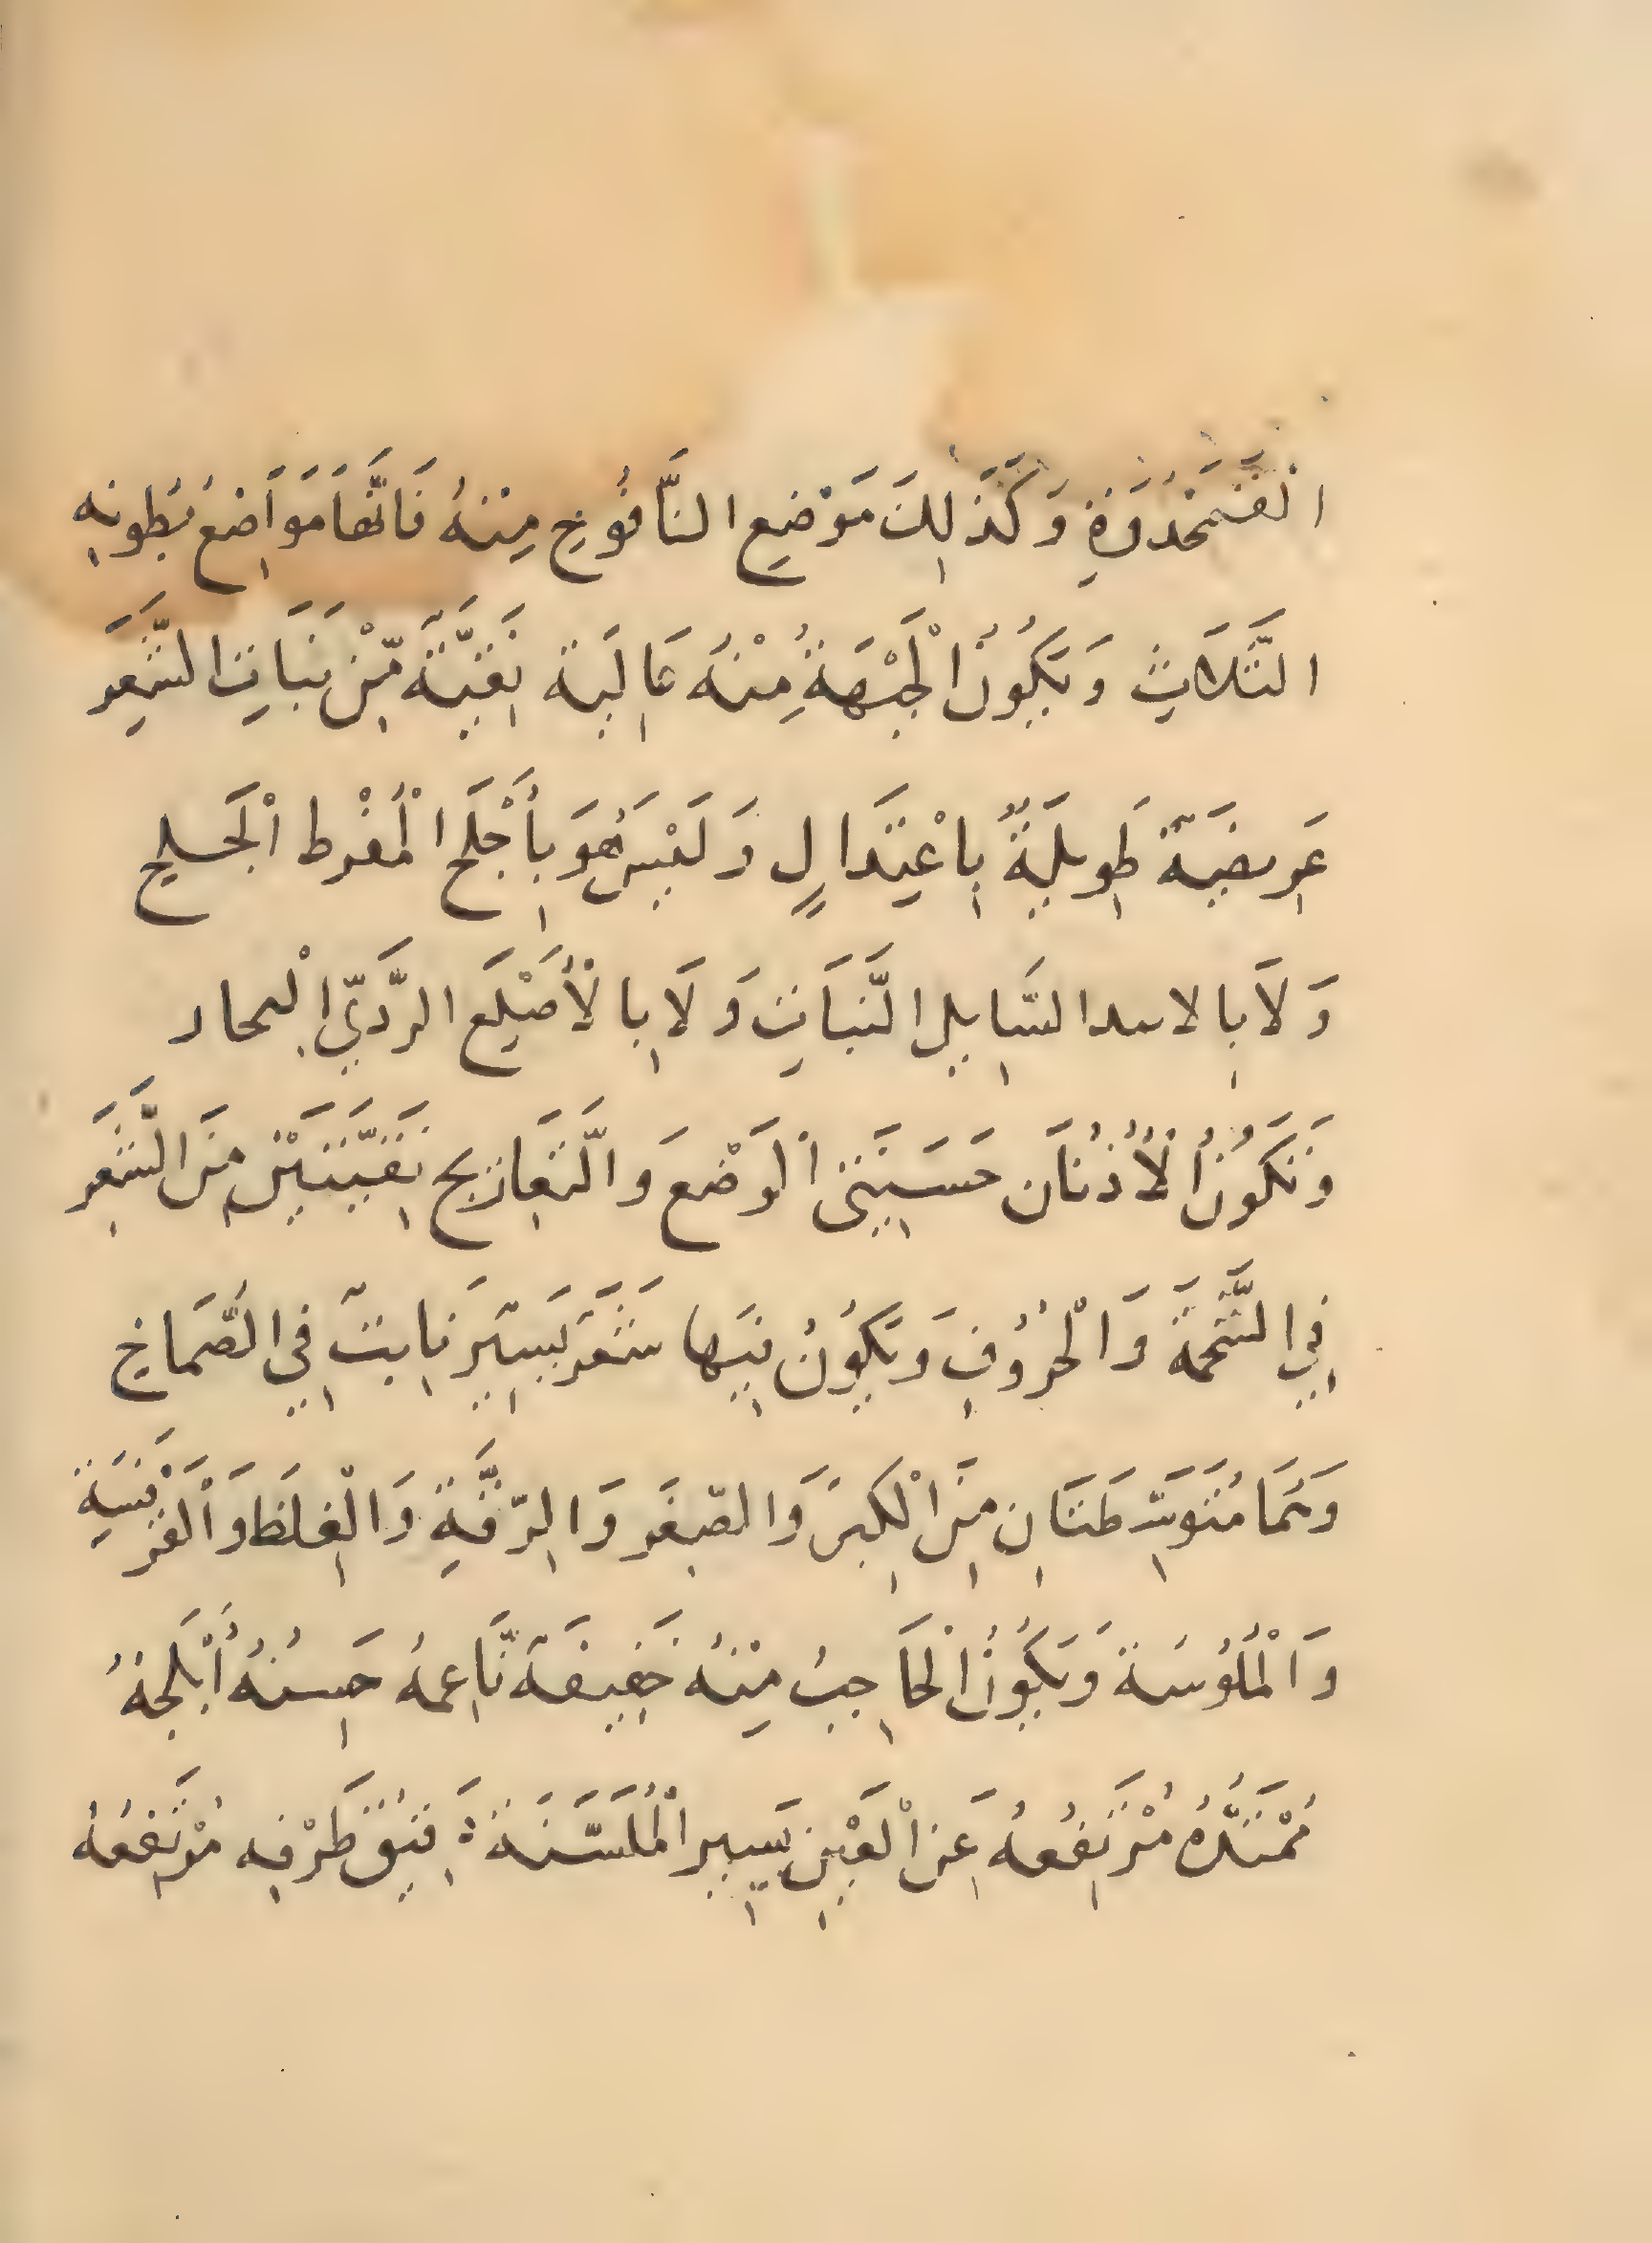 الْقَمَحْدُوَةِ وَكَذَلِكَ مَوْضِعِ النَّافُوخِ مِنْهُ فَانَّهَا مَوَاضِعُ بُطُونِهِ
الثَّلَاثِ وَيَكُونُ الْجَبْهَةُ مِنْهُ عَالِيَة نَقِيَّةً مِّنْ نَبَاتِ الشَّعَرِ
عَرِيضَةً طَوِيلَةٌ بِاعْتِدَالٍ وَلَيْسَ هُوَ بِأَجْلَحِ الْمُفْرط الْجَلح
وَلَا بِالاسدا السَّايِلِ النَّبَاتِ وَلَا بِالْأَصْلَعِ الرَّدِيِّ الحاد
وَتَكُونُ الْأُذُنَان حَسَنَتِيَ الْوَضْعِ وَالتَّعَارِيج نَقِيَّتَيْنِ مِنَ الشَّعَرِ
فِي الشَّحْمَةَ وَالْحُرُوفِ وَيَكُونُ فِيهَا شَعَرَ يَسِيْرَ نَابِتً فِي الصُّمَاخِ
وَهُمَا مُتَوَسِّطَتَانِ مِنَ الْكِبَرِ وَالصِّغَرِ وَالرِّقَّةِ وَالْغِلَظِ وَالْغَرْنِيَةِ
وَالْمُلُوسَة وَيَكُونُ الْحَاجِبُ مِنْهُ خَفِيفَةً نَّاعِمهُ حَسِنُهُ أَبْلَجهُ
مُمْتَدُّهُ مُرْتَفِعُهُ عَنِ الْعَيْنِ يَسِيرِ الْمُلَسَّنَة دَقِيقُ طَرْفِهِ مُرْتَفِعُهُ